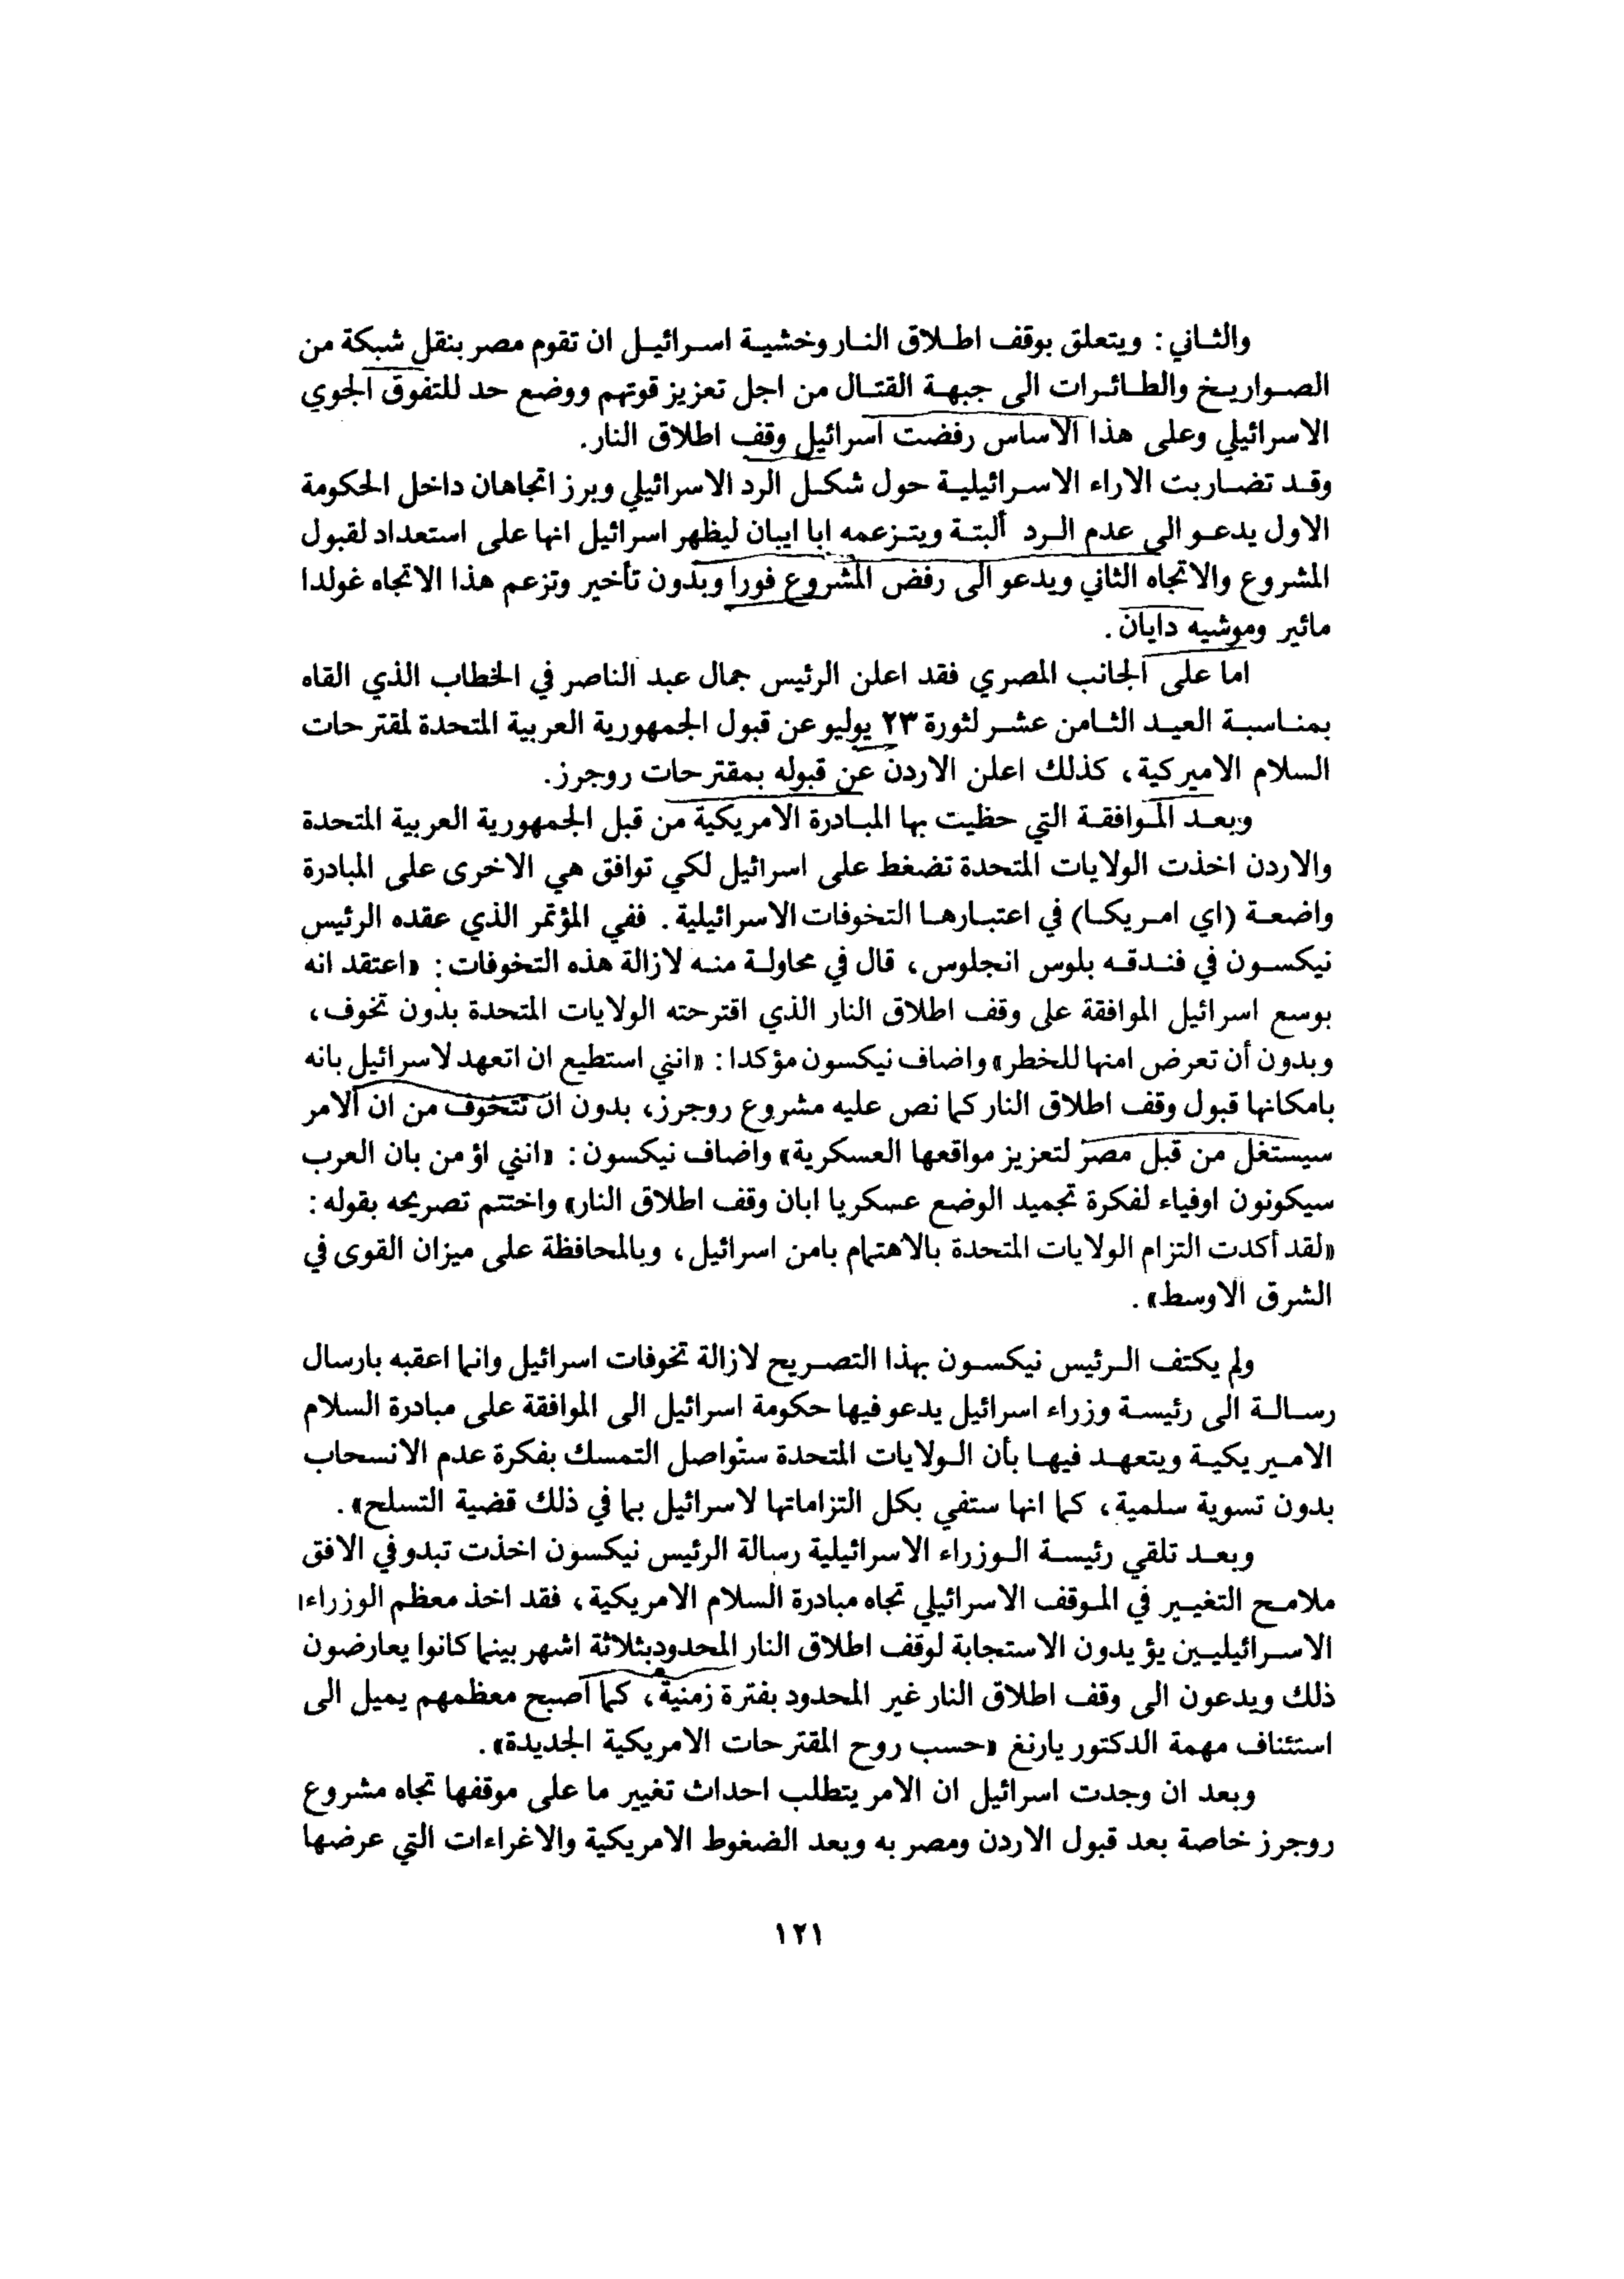 والثاني : ويتعلق بوقف اطلاق النار وخشية اسرائيل ان تقوم مصر بنقل شبكة من
الصواريخ والطائرات الى جبهة القتال من اجل تعزيز قوتهم ووضع حد للتفوق الجوي
الاسرائيلي وعلى هذا الاساس رفضت اسرائيل وقف اطلاق النار.
وقد تضاربت الاراء الاسرائيلية حول شكل الرد الاسرائيلي وبرز اتجاهان داخل الحكومة
الاول يدعو الى عدم الرد ألبتة ويتزعمه ابا ايبان ليظهر اسرائيل انها على استعداد لقبول
المشروع والاتجاه الثاني ويدعو الى رفض المشروع فورا وبدون تأخير وتزعم هذا الاتجاه غولدا
مائير وموشيه دايان .
اما على الجانب المصري فقد اعلن الرئيس جمال عبد الناصر في الخطاب الذي القاه
بمناسبة العيد الثامن عشر لثورة ٢٣ يوليو عن قبول الجمهورية العربية المتحدة لمقترحات
السلام الاميركية، كذلك اعلن الاردن عن قبوله بمقترحات روجرز.
وبعد الموافقة التي حظيت بها المبادرة الامريكية من قبل الجمهورية العربية المتحدة
والاردن اخذت الولايات المتحدة تضغط على اسرائيل لكي توافق هي الاخرى على المبادرة
واضعة (اي امريكا) في اعتبارها التخوفات الاسرائيلية . ففي المؤتمر الذي عقده الرئيس
نيكسون في فندقه بلوس انجلوس، قال في محاولة منه لازالة هذه التخوفات : «اعتقد انه
بوسع اسرائيل الموافقة على وقف اطلاق النار الذي اقترحته الولايات المتحدة بدون تخوف،
وبدون أن تعرض امنها للخطر» واضاف نيكسون مؤكدا : «انني استطيع ان اتعهد لاسرائيل بانه
بامكانها قبول وقف اطلاق النار كما نص عليه مشروع روجرز، بدون ان تتخوف من ان الامر
سيستغل من قبل مصر لتعزيز مواقعها العسكرية» واضاف نيكسون : «انني اؤمن بان العرب
سيكونون اوفياء لفكرة تجميد الوضع عسكريا ابان وقف اطلاق النار» واختتم تصريحه بقوله :
«لقد أكدت التزام الولايات المتحدة بالاهتمام بامن اسرائيل، وبالمحافظة على ميزان القوى في
الشرق الاوسط» .
ولم يكتف الرئيس نيكسون بهذا التصريح لازالة تخوفات اسرائيل وانما اعقبه بارسال
رسالة الى رئيسة وزراء اسرائيل يدعو فيها حكومة اسرائيل الى الموافقة على مبادرة السلام
الاميريكية ويتعهد فيها بأن الولايات المتحدة ستواصل التمسك بفكرة عدم الانسحاب
بدون تسوية سلمية، كما انها ستفي بكل التزاماتها لاسرائيل بما في ذلك قضية التسلح» .
وبعد تلقي رئيسة الوزراء الاسرائيلية رسالة الرئيس نيكسون اخذت تبدو في الافق
ملامح التغيير في الموقف الاسرائيلي تجاه مبادرة السلام الامريكية، فقد اخذ معظم الوزراء
الاسرائيليين يؤيدون الاستجابة لوقف اطلاق النار المحدود بثلاثة اشهر بينما كانوا يعارضون
ذلك ويدعون الى وقف اطلاق النار غير المحدود بفترة زمنية، كما اصبح معظمهم يميل الى
استئناف مهمة الدكتور يارنغ «حسب روح المقترحات الامريكية الجديدة» .
وبعد ان وجدت اسرائيل ان الامر يتطلب احداث تغيير ما على موقفها تجاه مشروع
روجرز خاصة بعد قبول الاردن ومصر به وبعد الضغوط الامريكية والاغراءات التي عرضها
١٢١